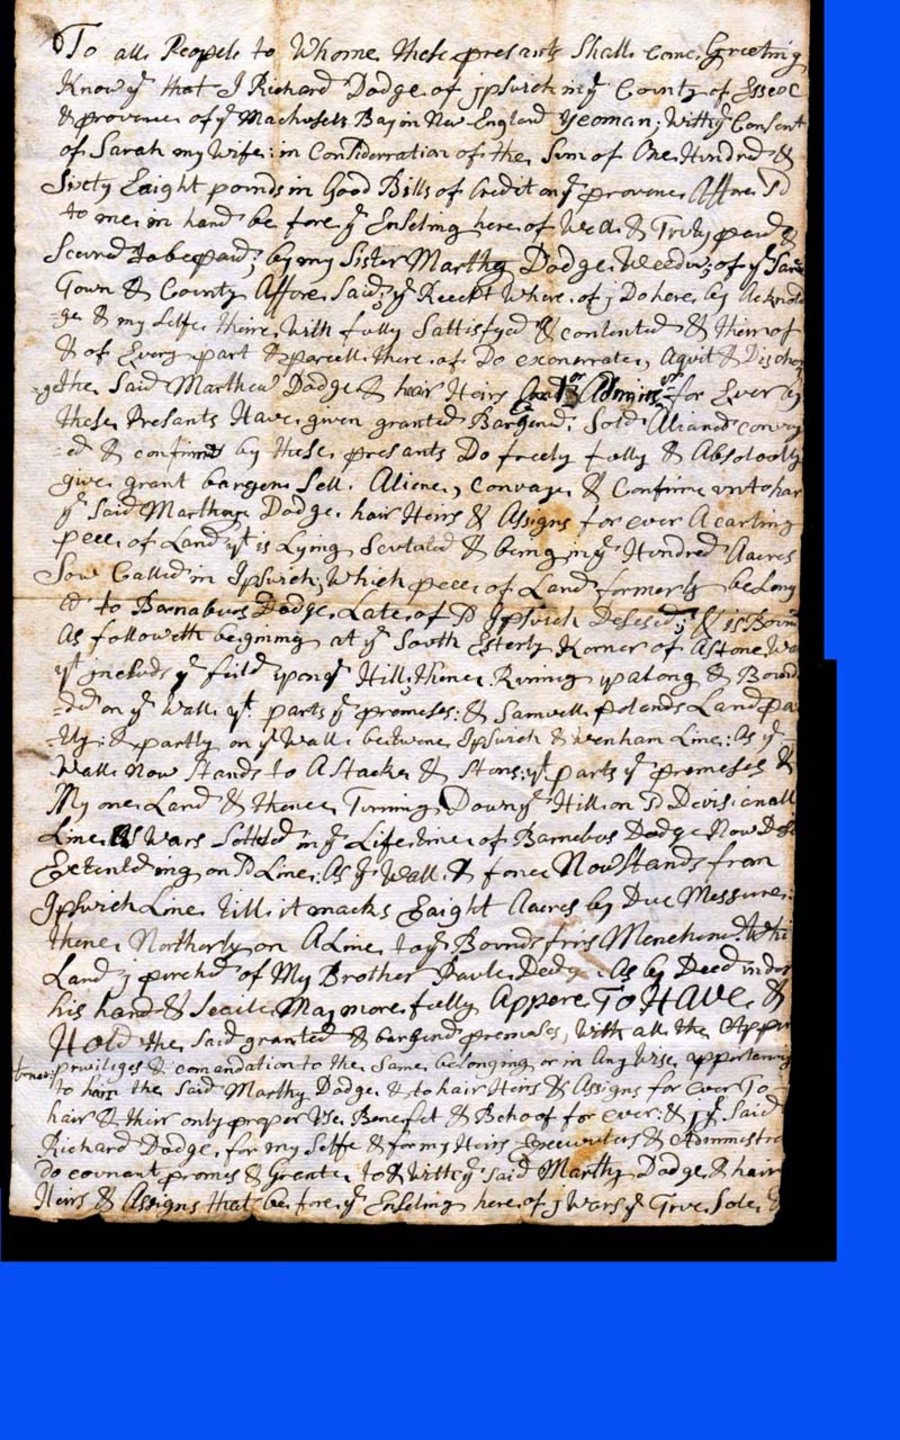 To all People to Whome these presants Shall come Greeting
Know ye that I Richard Dodge of jpswich in ye County of Essex
& provence of ye Machusets Bay in New England Yeoman; with ye Consent
of Sarah my Wife: in Considerration of the Sum of One Hundred &
Sixty Eaight pounds in Good Bills of Credit on ye provence Affore sd
to me in hand be fore ye Enseling here of Well & Truly paid &
Scured to be paid; by my Sister Marthy Dodge Weedw; of ye Same
Town & County Affore Said; ye Receipt Where of j Do here by Acknold
ge & my Selfe theire With fully Sattisfyed & contented & theirof
& of Every part & parcell there of Do exonerrate, Aquit & Dischar
ge the Said Marthew Dodge & hair Heirs for Ever by
these Presants Have given granted Bargend; Sold Aliened convey
ed & confirmd by these presants Do freely fully & Absolootly
give grant bargene Sell. Aliene, convaye & Confirme vnto har
ye Said Marthey Dodge hair Heirs & Assigns for ever A carting
peec of Land yt is Lying & being in ye Hundred Aacres
Soe Called in Ipswich; Which peec of Land formerly belong
ed to Barnabus Dodge Late of sd Ipswich Desesed; & is Bound
As followeth begining at ye South Esterly Korner of A Stone Wa
yt includs ye fild upon ye Hill; thence Runing up along & Bound
ded on ye Wall yt parts ye premeses: & Samuell polends Land pa
tly: & partly on ye Wall betwene Ipswich & Wenham Line: As ye
Wall Now Stands to A Stacke & Stons; yt parts ye premeses &
My one Land & thence Turning Down ye Hill on sd Devisionall
Line As Wars Setteld in ye Lifetime of Barnebus Dodge Now Dese
Extending on sd Line: As ye Wall & fence Now Stands from
Ipswich Line till it macks Eaight Aacres by Due Messure:
thence Northerly on A Line to ye Bounds first Menchened Whi
Land j purchd of My Brother Dodge As by Deed under
his hand & Seale May more fully Appere To HAVE &
Hold the Said granted & bargend premeses, With all the Appur
tenes: priviliges & comandation to the Same belonging or in Any Wise appertaning
to ham the Said Marthy Dodge & to hair Heirs & Assigns for ever To
hair & their only proper Use Benefet & Behoof for ever: & j ye Said
Richard Dodge for my Selfe & for my Heirs Executers & Administra
Do covnant promes & Grante to & with ye Said Marthy Dodge & hair
Heirs & Assigns that be fore ye Enseling here of j Wars ye True Sole